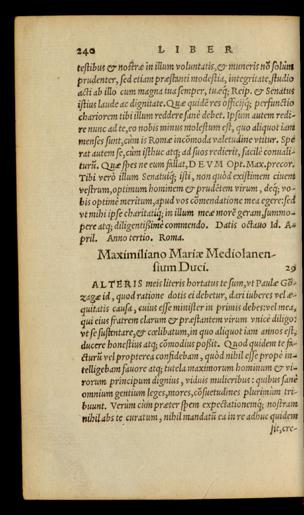 240 LIBER
testibus & nostræ in illum voluntatis, & muneris nõ solùm
prudenter, sed etiam præstanti modestia, integritate, studio
acti ab illo cum magna tua semper, tuæq; Reip. & Senatus
istius laude ac dignitate. Quæ quidẽ res officijq; perfunctio
chariorem tibi illum reddere sanè debet. Ipsum autem redi-
re nunc ad te, eo nobis minus molestum est, quo aliquot iam
menses sunt, cùm is Romæ incõmoda valetudine vtitur. Spe
rat autem se, cùm isthuc atq; ad suos redierit, facilè conuali-
turũ. Quæ spes ne eum fallat, DEVM Opt. Max. precor.
Tibi verò illum Senatuiq; isti, non quòd existimem ciuem
vestrum, optimum hominem & prudẽtem virum, deq; vo-
bis optimè meritum, apud vos cõmendatione mea egere: sed
vt mihi ipse charitatiq; in illum meæ morẽ geram, summo-
pere atq; diligentissimè commendo. Datis octauo Id. A-
pril. Anno tertio. Roma.
Maximiliano Mariæ Mediolanen-
sium Duci. 29
ALTERIS meis literis hortatus te sum, vt Paulæ Gõ-
zagæ id, quod ratione dotis ei debetur, dari iuberes vel æ-
quitatis causa, cuius esse minister in primis debes: vel mea,
qui eius fratrem clarum & præstantem virum vnicè diligo:
vt se sustentare, & cœlibatum, in quo aliquot iam annos est,
ducere honestius atq; cõmodius possit. Quod quidem te fa-
cturũ vel propterea confidebam, quòd nihil esse propè in-
telligebam fauore atq; tutela maximorum hominum & vi-
rorum principum dignius, viduis mulieribus: quibus sanè
omnium gentium leges, mores, cõsuetudines plurimùm tri-
buunt. Verùm cùm præter spem expectationemq; nostram
nihil abs te curatum, nihil mandatũ ea in re adhuc quidem
sit, cre-